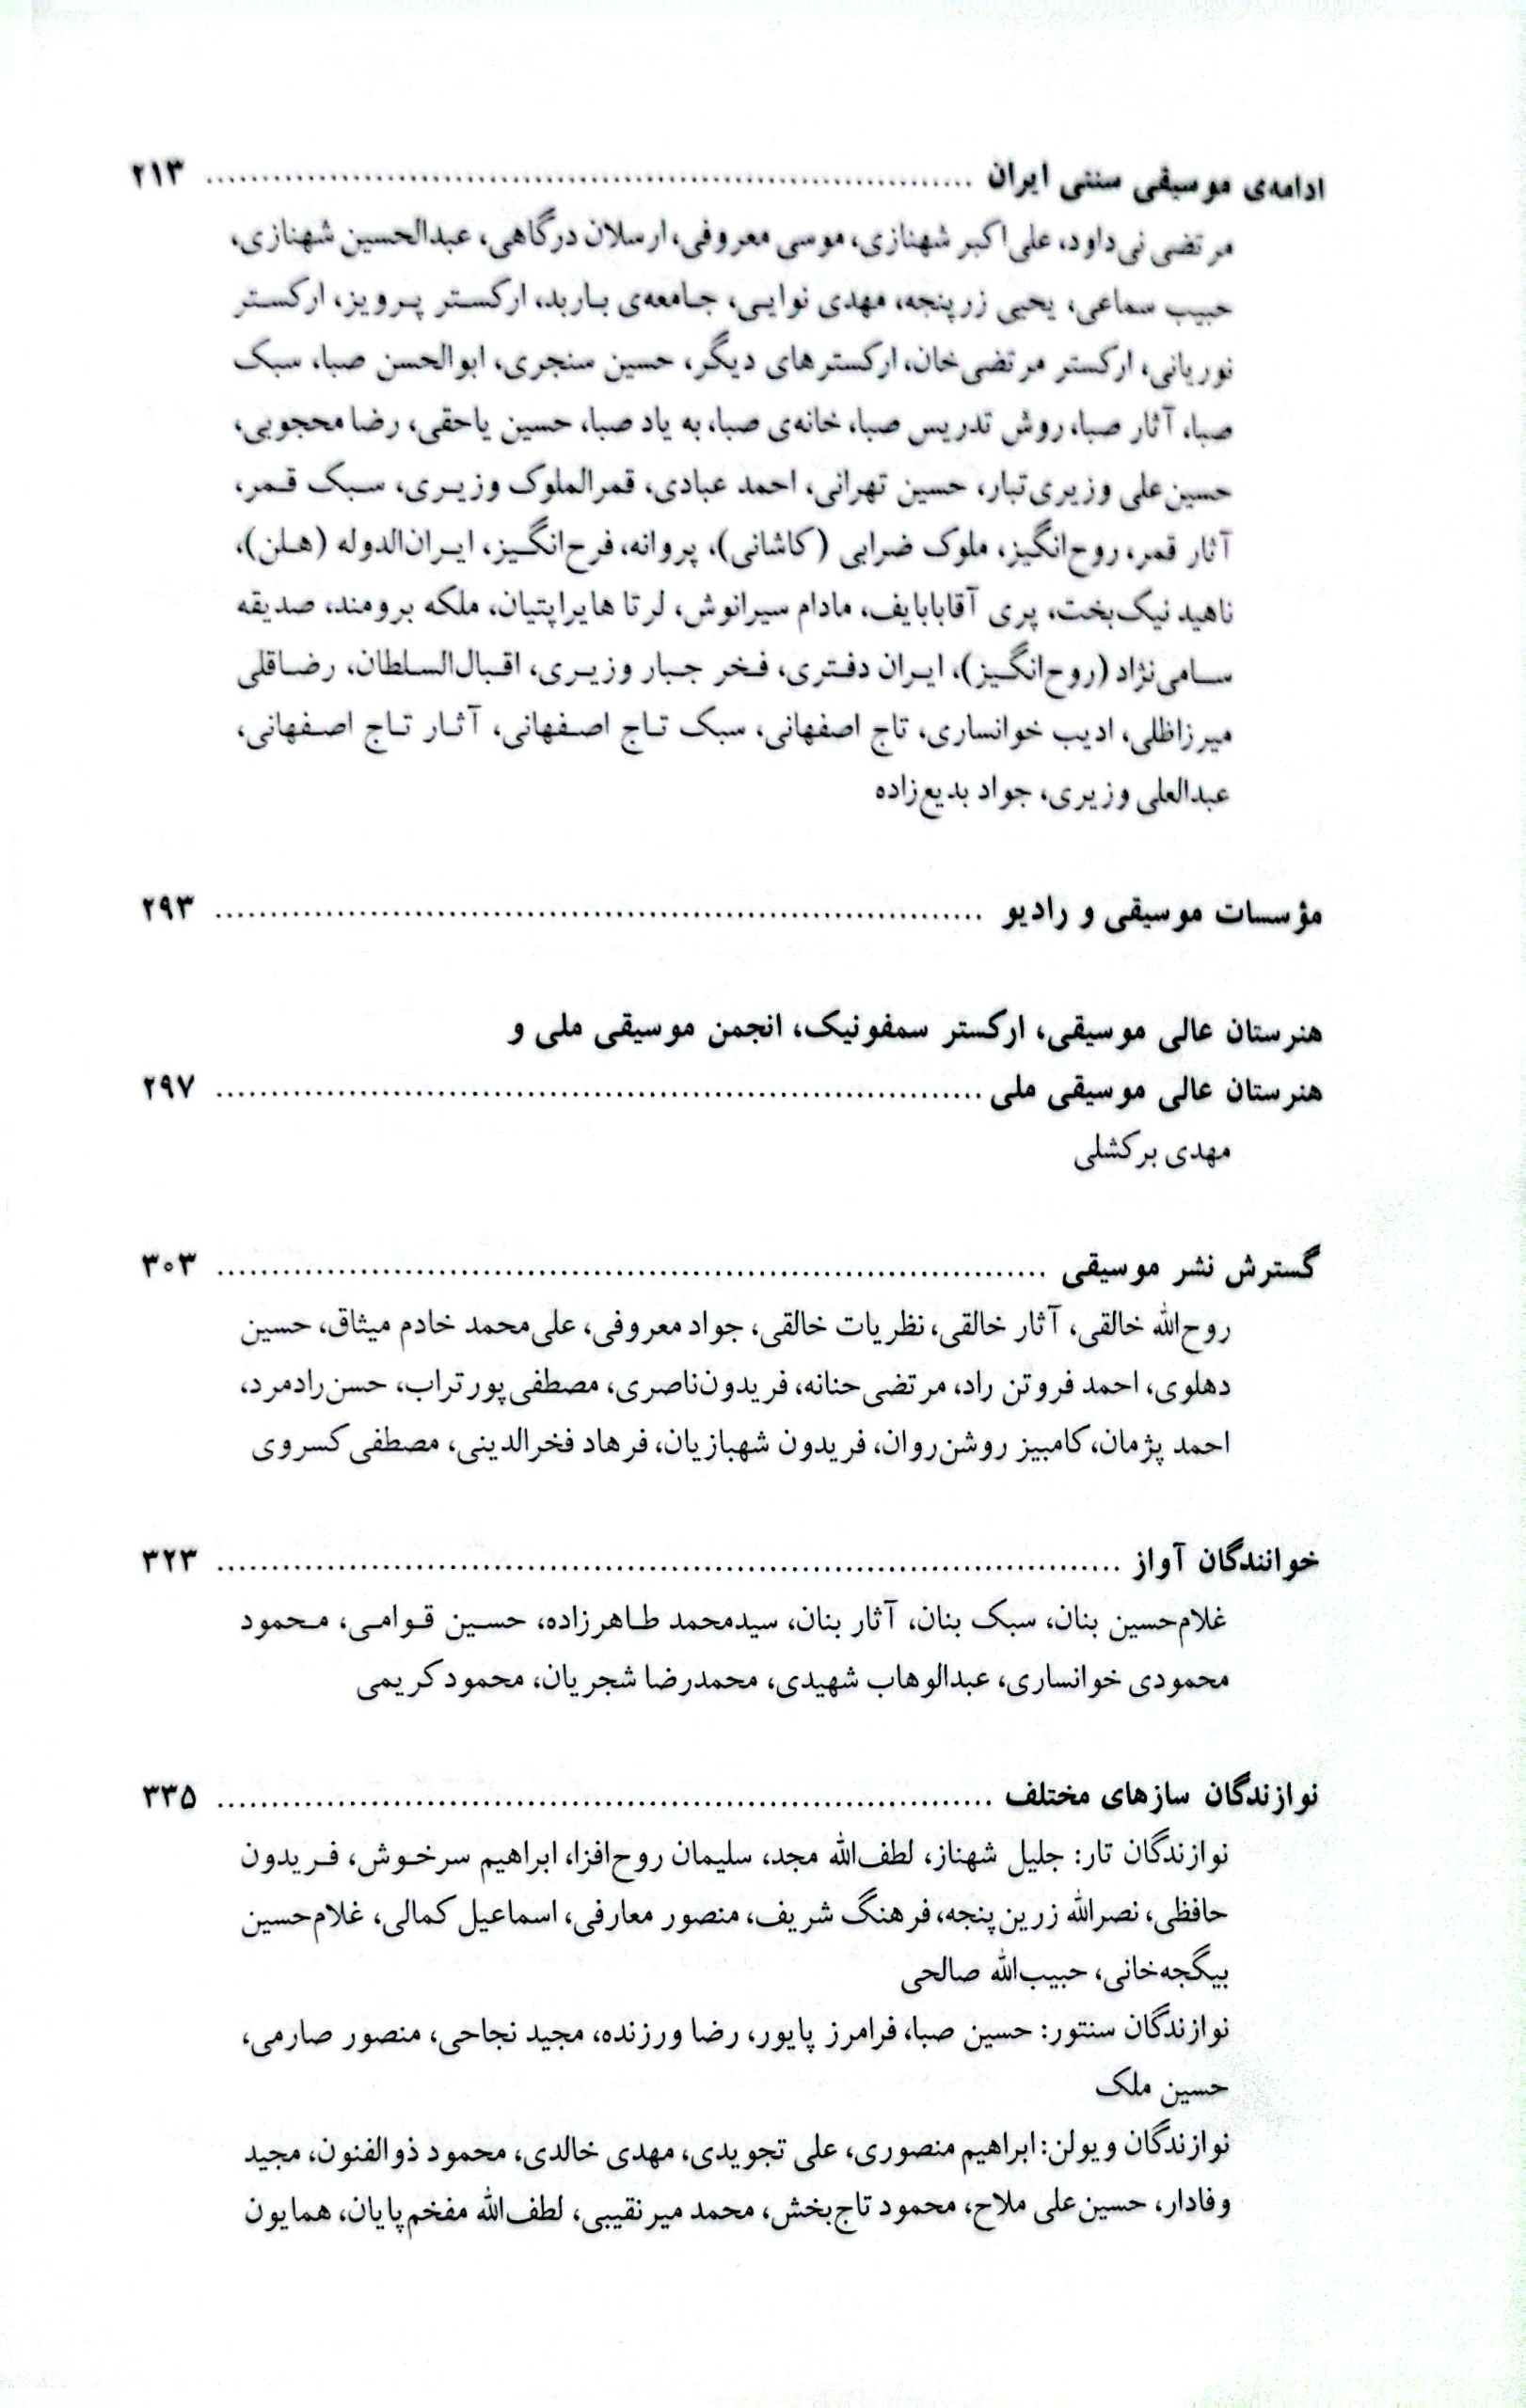 ادامه‌ی موسیقی سنتی ایران ........................................ ۲۱۳
مرتضی نی‌داود، علی‌اکبر شهنازی، موسی معروفی، ارسلان درگاهی، عبدالحسین شهنازی،
حبیب سماعی، یحیی زرپنجه، مهدی نوایی، جامعه‌ی باربد، ارکستر پرویز، ارکستر
نوریانی، ارکستر مرتضی‌خان، ارکسترهای دیگر، حسین سنجری، ابوالحسن صبا، سبک
صبا، آثار صبا، روش تدریس صبا، خانه‌ی صبا، به یاد صبا، حسین یاحقی، رضا محجوبی،
حسین‌علی وزیری‌تبار، حسین تهرانی، احمد عبادی، قمرالملوک وزیری، سبک قمر،
آثار قمر، روح‌انگیز، ملوک ضرابی (کاشانی)، پروانه، فرح‌انگیز، ایران‌الدوله (هلن)،
ناهید نیک‌بخت، پری آقابابایف، مادام سیرانوش، لرتا هایراپتیان، ملکه برومند، صدیقه
سامی‌نژاد (روح‌انگیز)، ایران دفتری، فخر جبار وزیری، اقبال‌السلطان، رضاقلی
میرزاظلی، ادیب خوانساری، تاج اصفهانی، سبک تاج اصفهانی، آثار تاج اصفهانی،
عبدالعلی وزیری، جواد بدیع‌زاده
مؤسسات موسیقی و رادیو ........................................ ۲۹۳
هنرستان عالی موسیقی، ارکستر سمفونیک، انجمن موسیقی ملی و
هنرستان عالی موسیقی ملی ........................................ ۲۹۷
مهدی برکشلی
گسترش نشر موسیقی ........................................ ۳۰۳
روح‌الله خالقی، آثار خالقی، نظریات خالقی، جواد معروفی، علی‌محمد خادم میثاق، حسین
دهلوی، احمد فروتن راد، مرتضی حنانه، فریدون‌ناصری، مصطفی‌پورتراب، حسن‌رادمرد،
احمد پژمان، کامبیز روشن‌روان، فریدون شهبازیان، فرهاد فخرالدینی، مصطفی کسروی
خوانندگان آواز ........................................ ۳۲۳
غلام‌حسین بنان، سبک بنان، آثار بنان، سیدمحمد طاهرزاده، حسین قوامی، محمود
محمودی خوانساری، عبدالوهاب شهیدی، محمدرضا شجریان، محمود کریمی
نوازندگان سازهای مختلف ........................................ ۳۳۵
نوازندگان تار: جلیل شهناز، لطف‌الله مجد، سلیمان روح‌افزا، ابراهیم سرخوش، فریدون
حافظی، نصرالله زرین‌پنجه، فرهنگ شریف، منصور معارفی، اسماعیل کمالی، غلام‌حسین
بیگجه‌خانی، حبیب‌الله صالحی
نوازندگان سنتور: حسین صبا، فرامرز پایور، رضا ورزنده، مجید نجاحی، منصور صارمی،
حسین ملک
نوازندگان ویولن: ابراهیم منصوری، علی تجویدی، مهدی خالدی، محمود ذوالفنون، مجید
وفادار، حسین‌علی ملاح، محمود تاج‌بخش، محمد میرنقیبی، لطف‌الله مفخم‌پایان، همایون